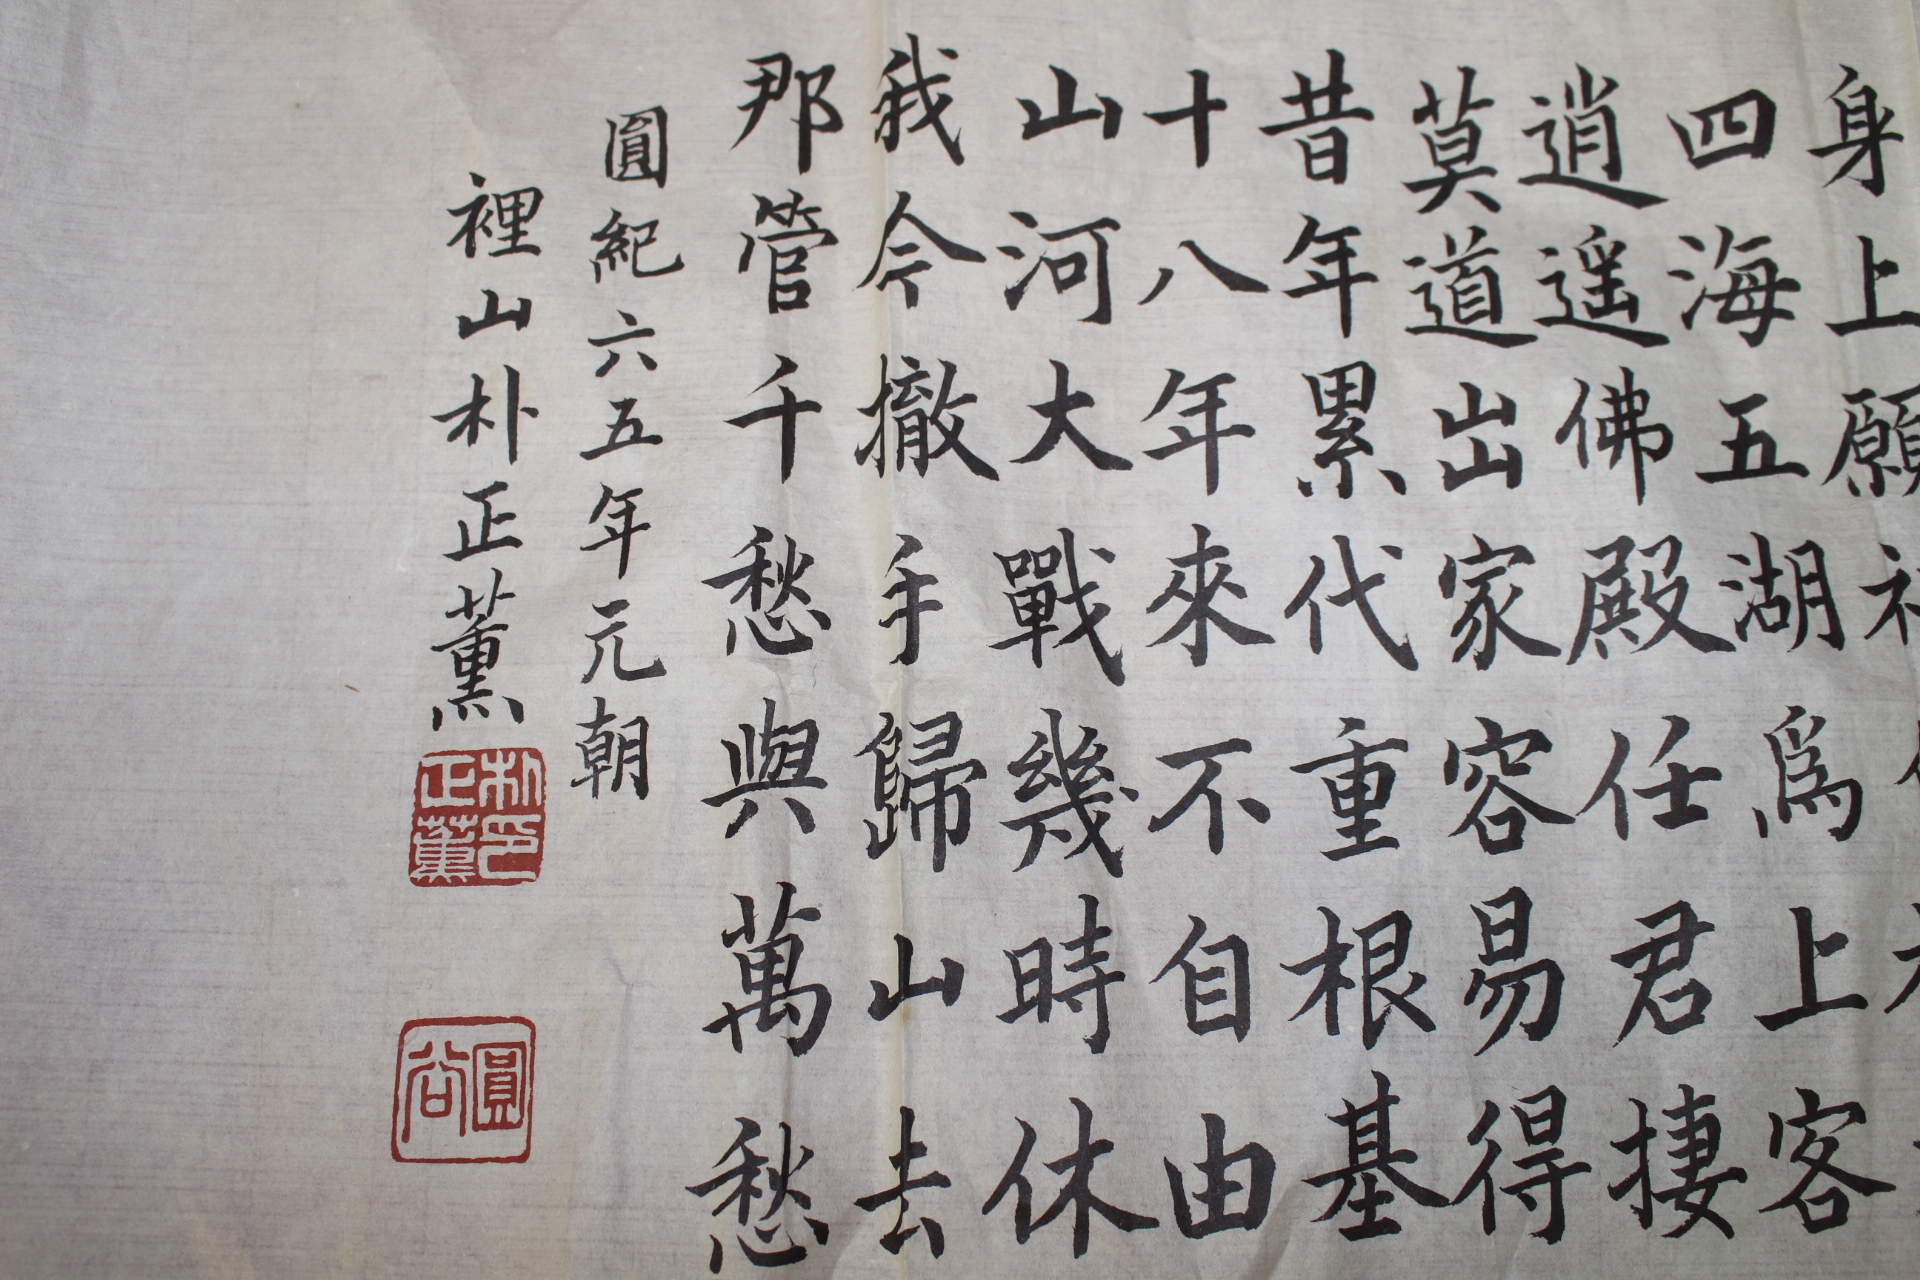 身上願
四海五湖爲上客
逍遥佛殿任君捿
莫道出家容易得
昔年累代重根基
十八年來不自由
山河大戰幾時休
我今撤手歸山去
那管千愁與萬愁
圓紀六五年元朝
裡山朴正薰
朴正薰印
圓谷